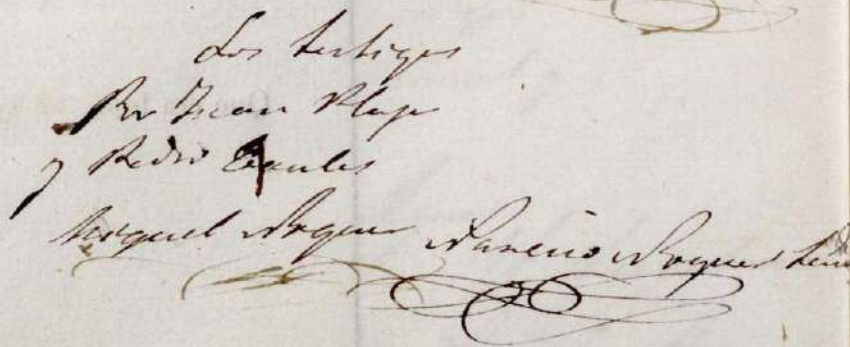 Los testigos
Por Juan Plaja
y Pedro
Miquel Noguer Narciso Noguer